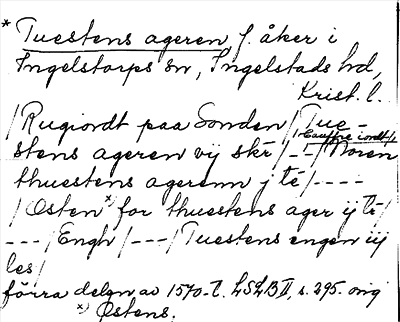 * Tuestens ageren f. åker i
Ingelstorps sn, Ingelstads hd,
Krist. l.
/Rugiordt paa Sonden/Tue-
/Cauffre iordt/
stens ageren vij skr/--/Noren
thuestens agerenn j tē/----
/Østen *) for thuestens ager ij tē/
---/Engh/---/Tuestens engen iij
les/
förra delen av 1570-t. LSLB II, s. 295. orig
*) Østens.